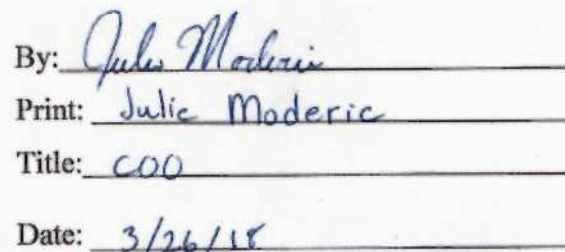 By: Julie Moderic
Print: Julie Moderic
Title: COO
Date: 3/26/18